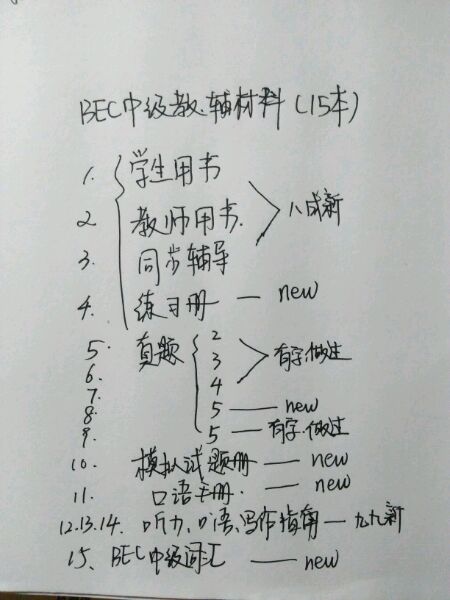 BEC中级教.辅材料(15本)
1. 学生用书
2 教师用书. 八成新
3. 同步辅导
4. 练习册 — new
5. 真题 2
6. 3 有字.做过
7. 4
8. 5 — new
9. 5 — 有字.做过
10. 模拟试题册 — new
11. 口语手册. — new
12.13.14. 听力、口语、写作指南 — 九九新
15、BEC中级词汇 — new